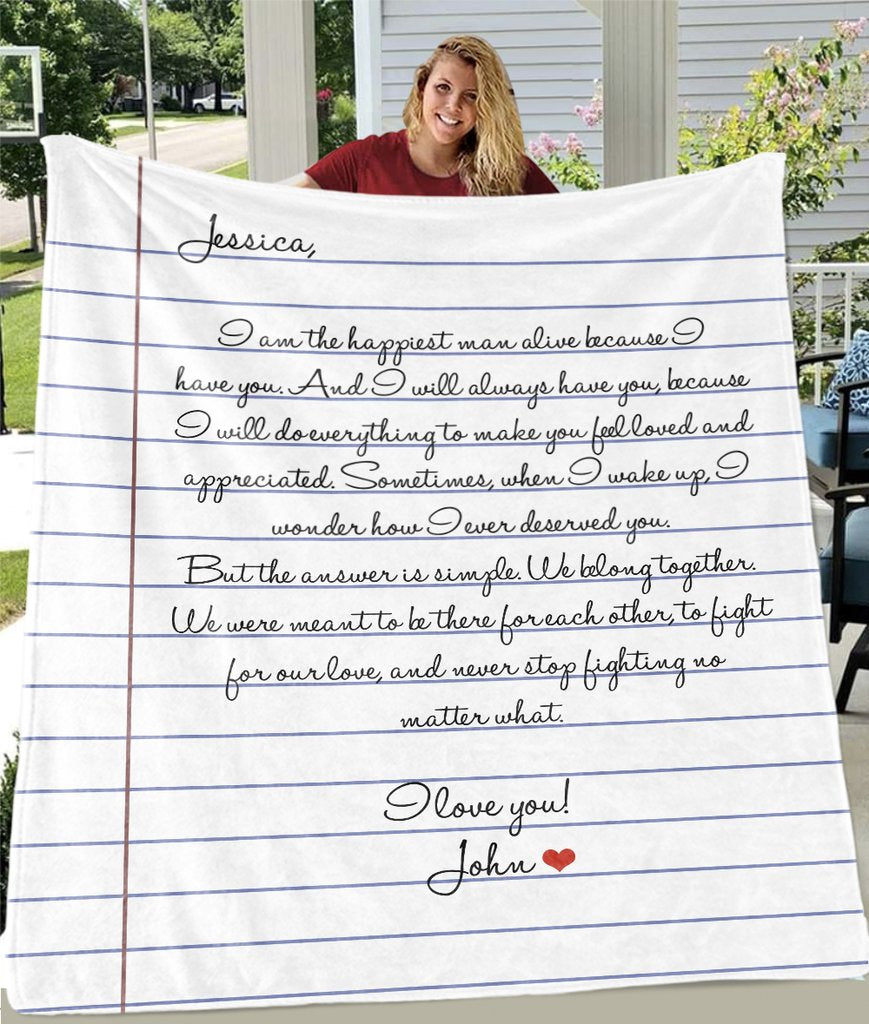 Jessica,
I am the happiest man alive because I
have you. And I will always have you, because
I will do everything to make you feel loved and
appreciated. Sometimes, when I wake up, I
wonder how I ever deserved you.
But the answer is simple. We belong together.
We were meant to be there for each other, to fight
for our love, and never stop fighting no
matter what.
I love you!
John ❤